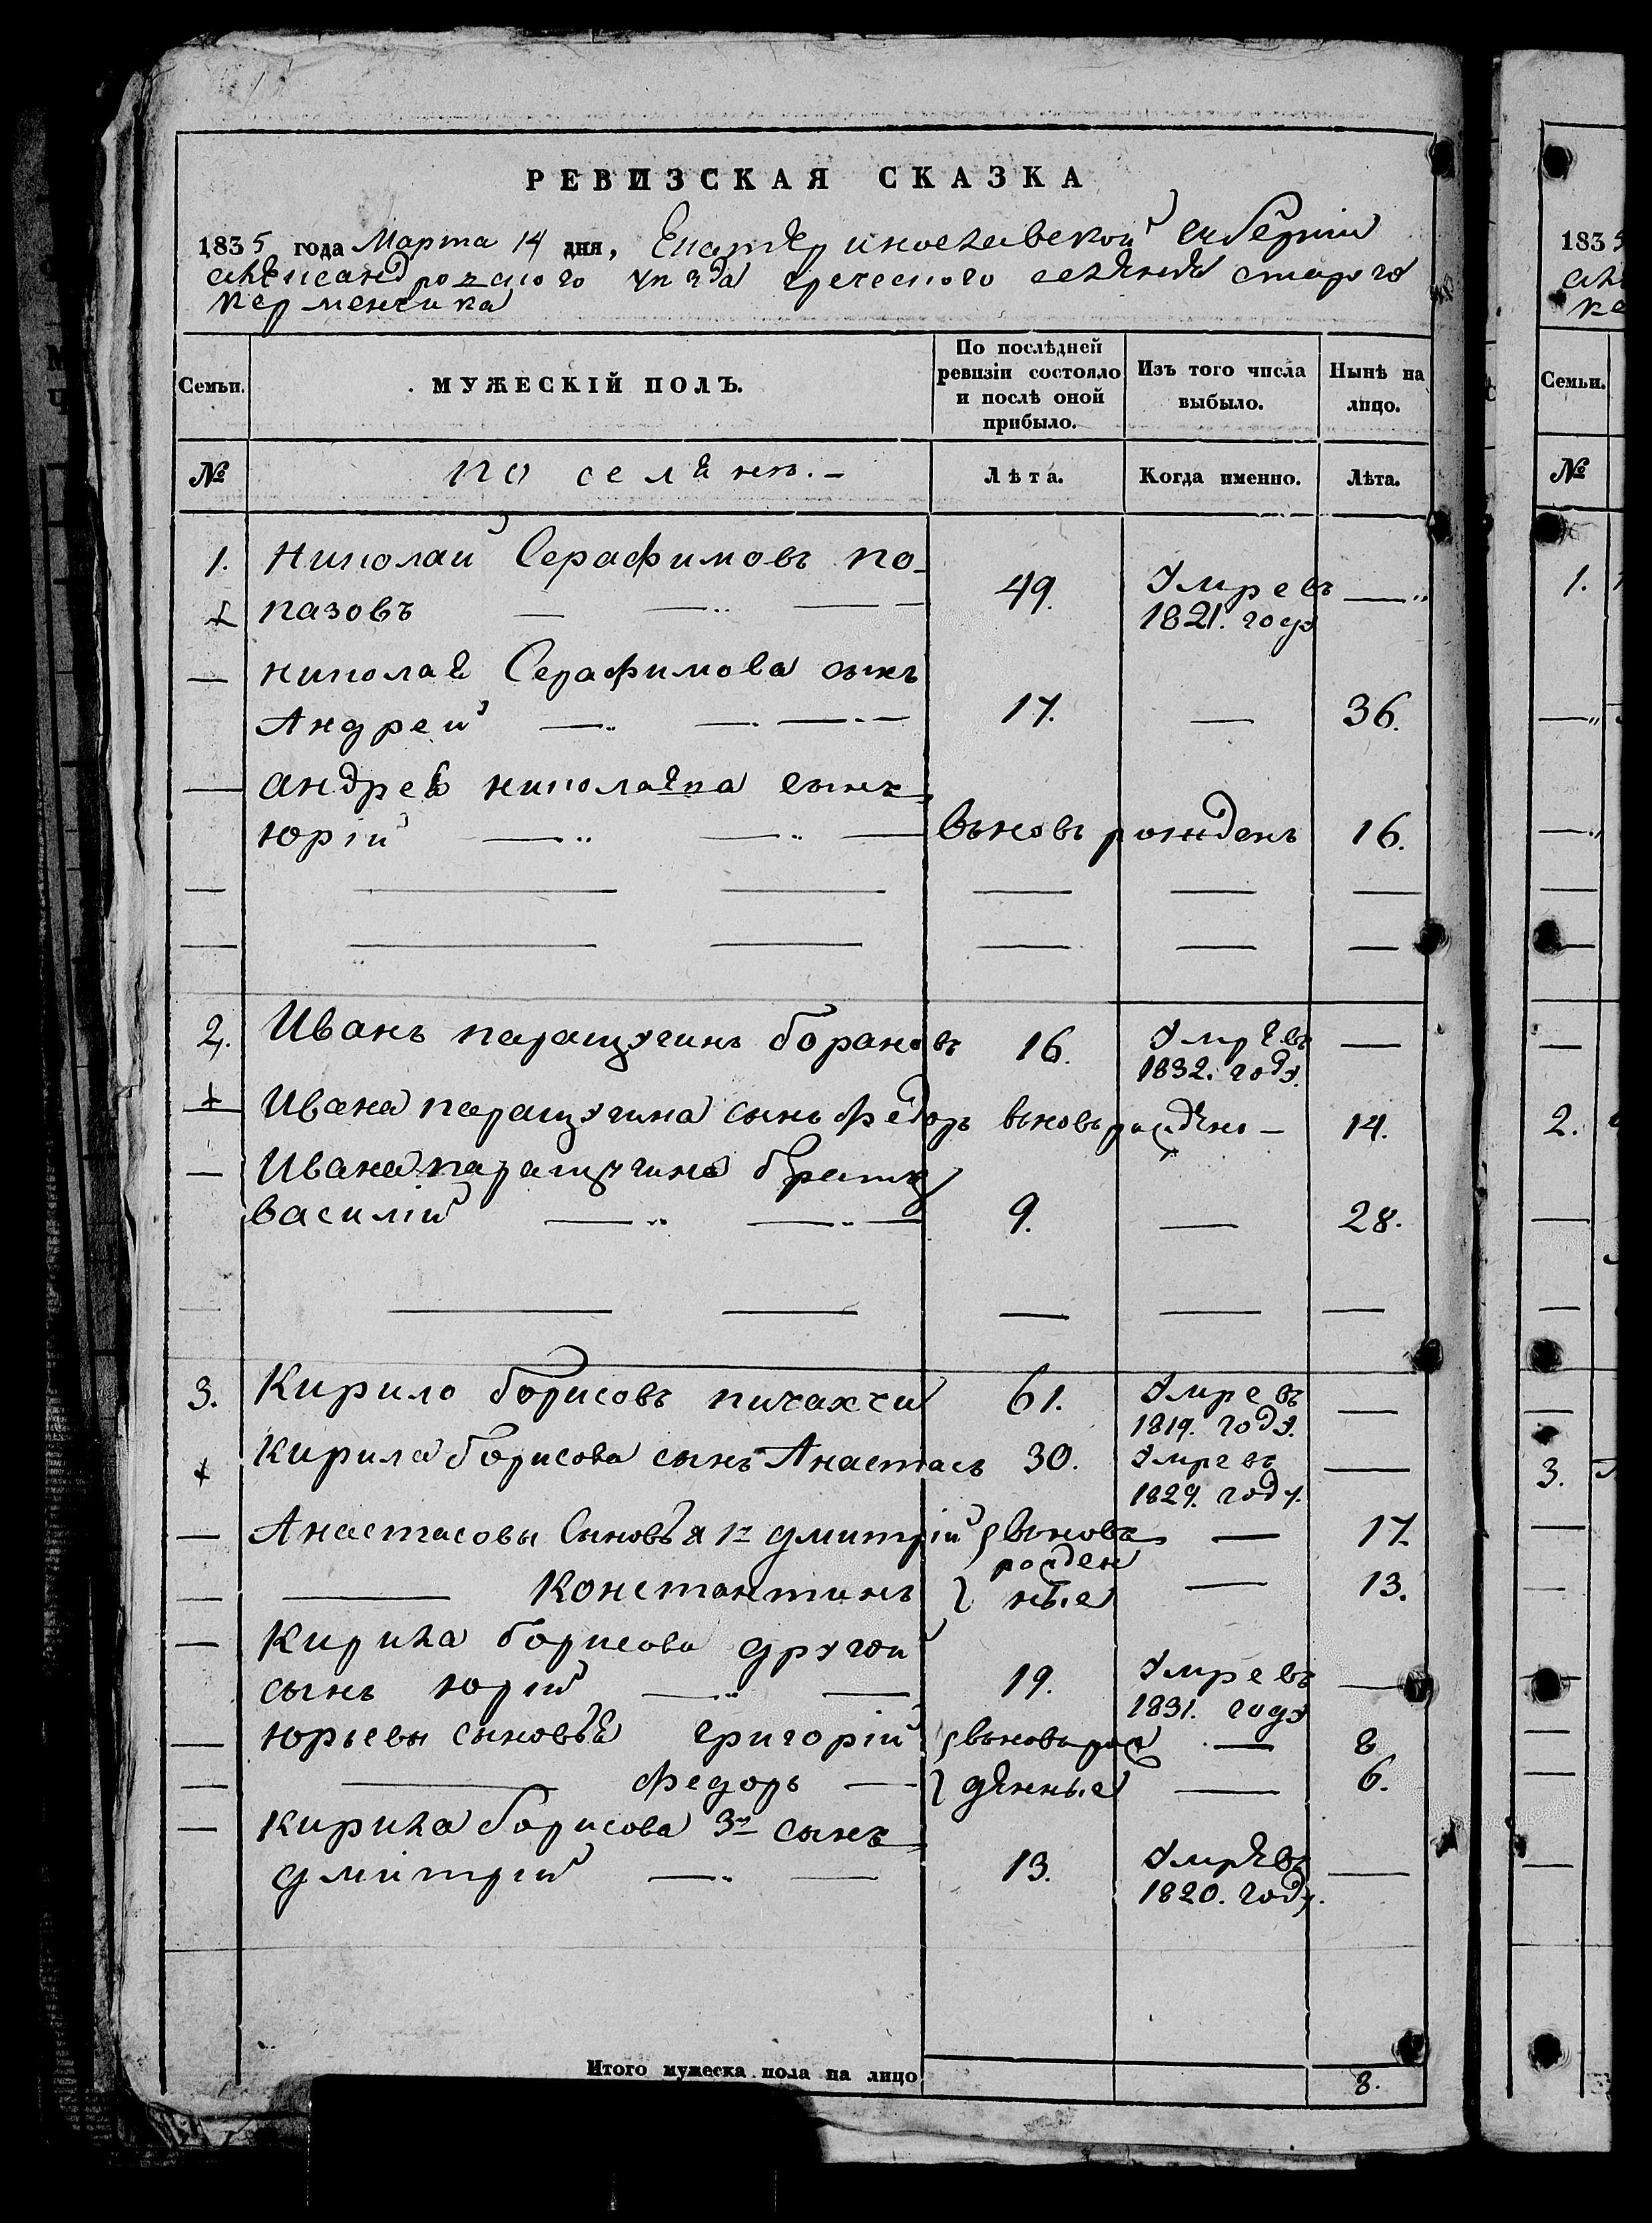 РЕВИЗСКАЯ СКАЗКА
1835 года Марта 14 дня, Екатеринославской Губернии
александровского уезда греческого селения старого
керменчика
Семьи. МУЖЕСКІЙ ПОЛЪ. По послѣдней ревизіи состояло и послѣ оной прибыло. Изъ того числа выбыло. Нынѣ на лицо.
№ поселянъ.— Лѣта. Когда именно. Лѣта.
1. Николай Серафимовъ по-
пазовъ 49. Умре въ 1821. году —
— николая Серафимова сынъ
Андрей 17. — 36.
— андрея николаева сынъ
юрій вновь рожденъ 16.
2. Иванъ паращухинъ боранов въ 16. Умре въ 1832. году. —
Ивана сынъ федоръ вновь рожденъ — 14.
— Ивана братъ
василій 9. — 28.
3. Кирило борисовъ пичахчи 61. Умре въ 1819. году. —
Кирила борисова сынъ Анастасъ 30. Умре въ 1829. году. —
— Анастасовы Сыновья 1й дмитрій вновь — 17
— Константинъ рожденные — 13.
— Кирила борисова другой
сынъ юрій 19. Умре въ 1831. году —
— юрьевы сыновья григорій вновь рож — 8
— федоръ — денные — 6.
— Кирила борисова 3й сынъ
дмитрій 13. Умре въ 1820. году. —
Итого мужеска пола на лицо 8.
1835
Семьи.
№
1.
2.
3.